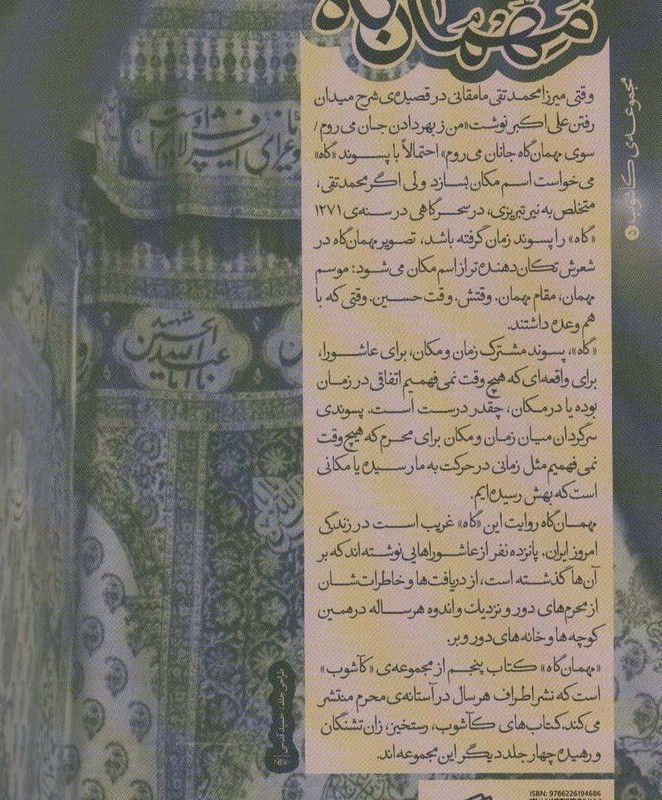 مهمان‌گاه
وقتی میرزا محمدتقی مامقانی در قصیده‌ی شرح میدان
رفتن علی‌اکبر نوشت «من ز بهر دادن جان می‌روم /
سوی مهمان‌گاه جانان می‌روم» احتمالاً با پسوند «گاه»
می‌خواست اسم مکان بسازد ولی اگر محمدتقی،
متخلص به نیر تبریزی، در سحرگاهی در سنه‌ی ۱۲۷۱
«گاه» را پسوند زمان گرفته باشد، تصویر مهمان‌گاه در
شعرش تکان‌دهنده‌تر از اسم مکان می‌شود: موسم
مهمان، مقام مهمان. وقتش. وقت حسین. وقتی که با
هم وعده داشتند.
«گاه»، پسوند مشترک زمان و مکان، برای عاشورا،
برای واقعه‌ای که هیچ وقت نمی‌فهمیم اتفاقی در زمان
بوده یا در مکان، چقدر درست است. پسوندی
سرگردان میان زمان و مکان برای محرم که هیچ وقت
نمی‌فهمیم مثل زمانی در حرکت به ما رسیده یا مکانی
است که بهش رسیده‌ایم.
مهمان‌گاه روایت این «گاه» غریب است در زندگی
امروز ایران. پانزده نفر از عاشوراهایی نوشته‌اند که بر
آن‌ها گذشته است، از دریافت‌ها و خاطرات‌شان
از محرم‌های دور و نزدیک و اندوه هرساله در همین
کوچه‌ها و خانه‌های دور و بر.
«مهمان‌گاه» کتاب پنجم از مجموعه‌ی «کآشوب»
است که نشر اطراف هر سال در آستانه‌ی محرم منتشر
می‌کند. کتاب‌های کآشوب، رستخیز، زان تشنگان
و رهیده چهار جلد دیگر این مجموعه‌اند.
مجموعه‌ی کآشوب ۵
شهید
الحسین
عبدالله
طراح جلد: حمید قدسی
ISBN: 9786226194686